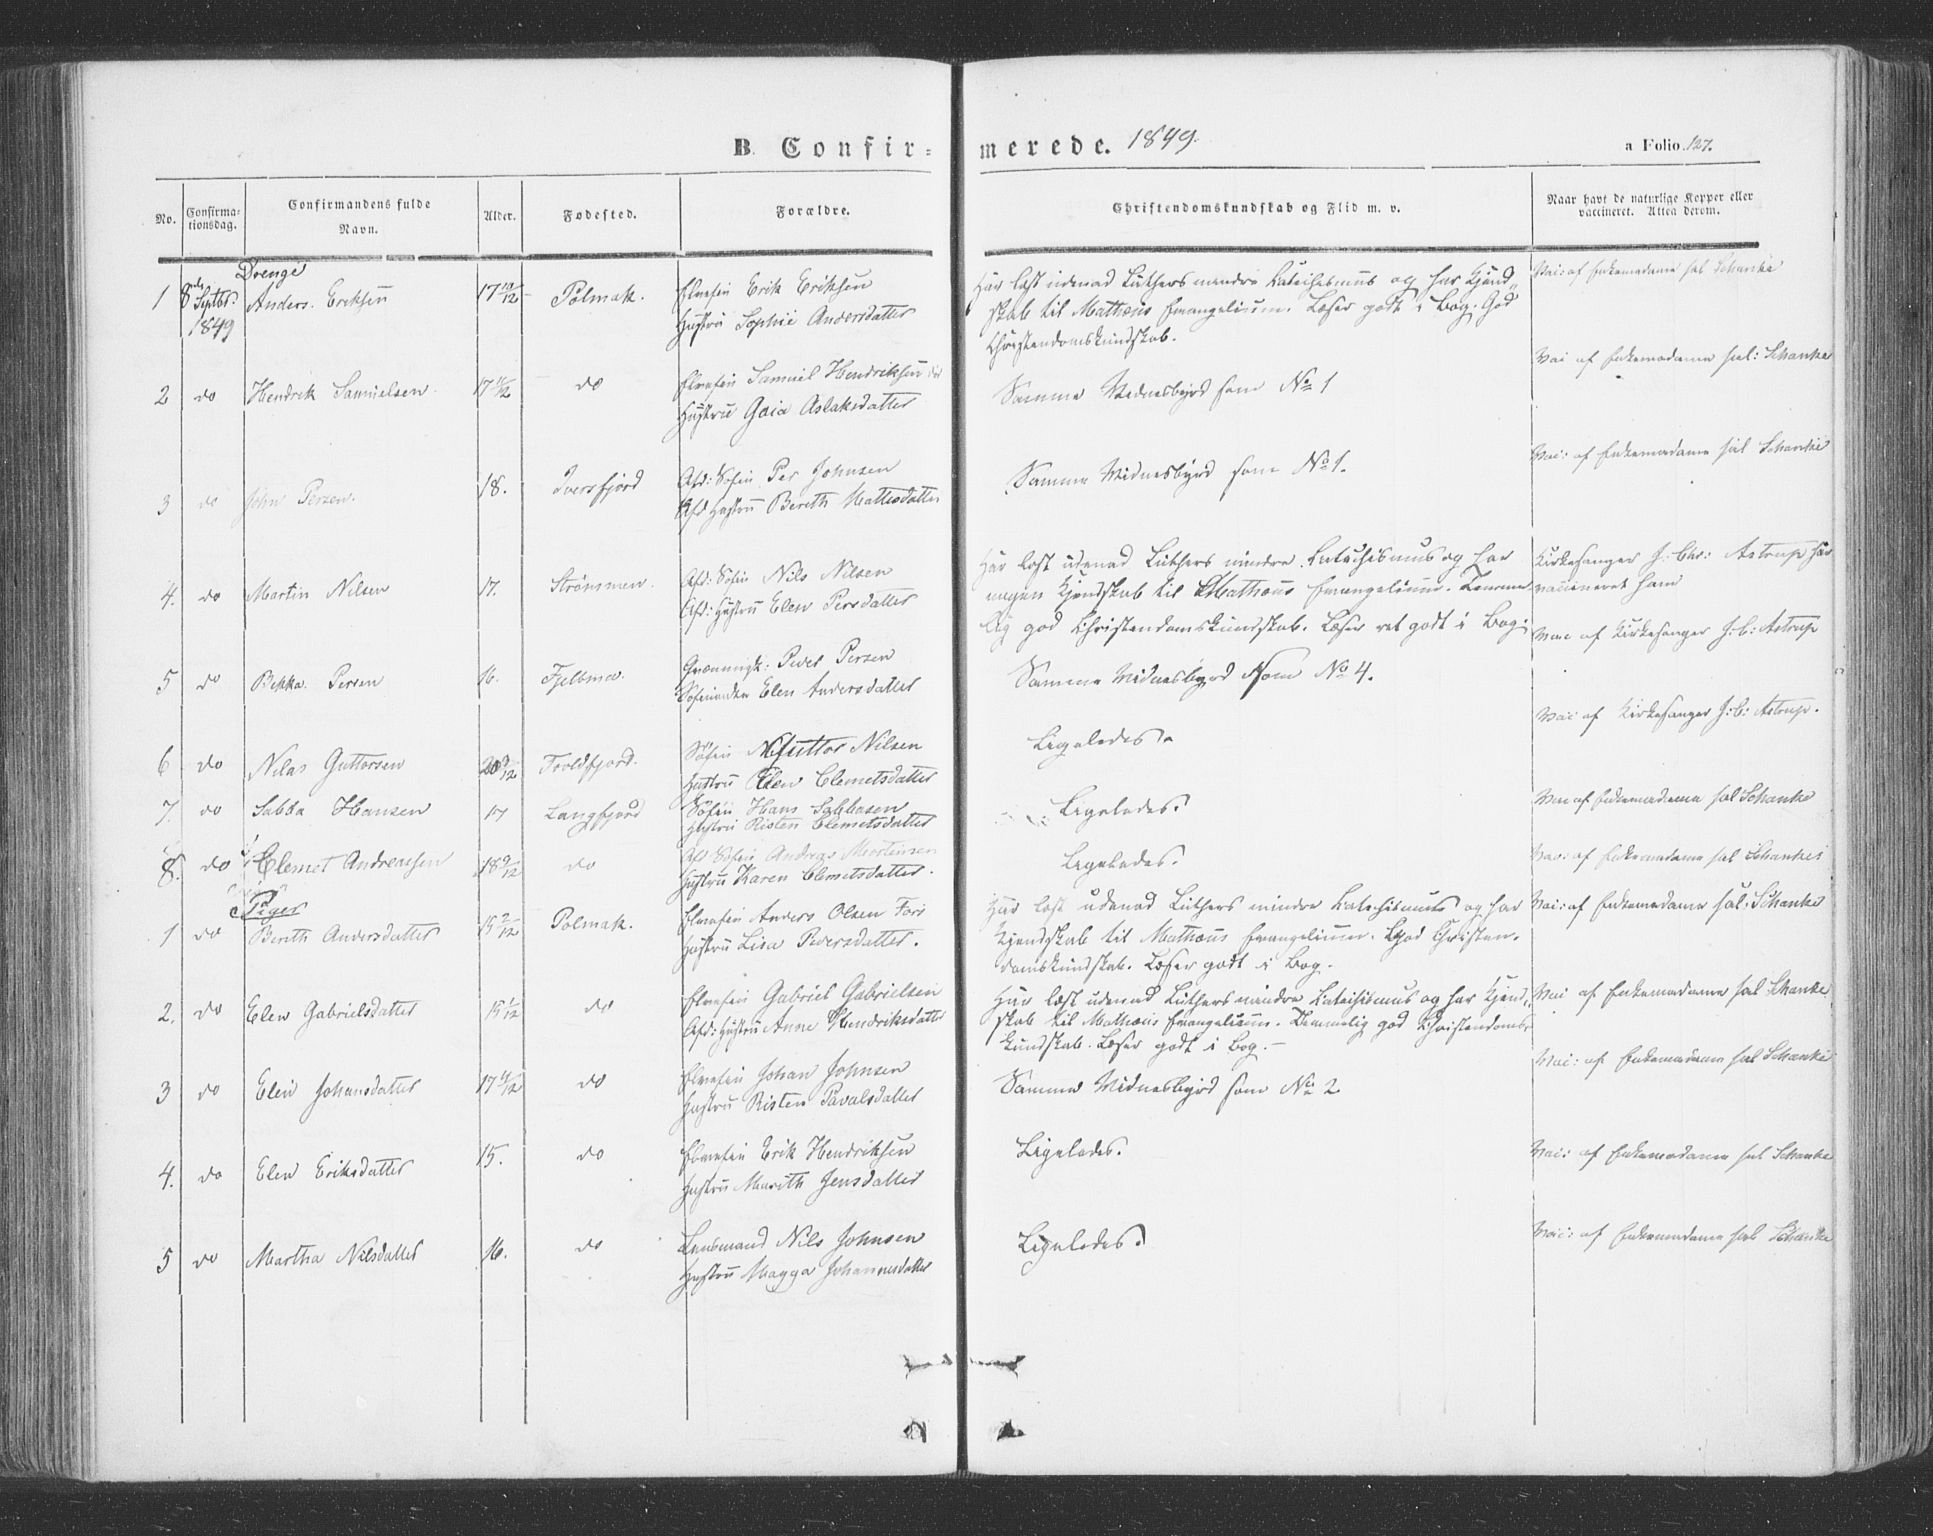 B. Confir-
merede. 1849.
a Folio 127.
No.
Confirma-
tionsdag.
Confirmandens fulde
Navn.
Alder.
Fødested.
Forældre.
Christendomskundskab og Flid m. v.
Naar havt de naturlige Kopper eller
vaccineret. Attest derom.
Drenge
1 8de Septbr. 1849 Anders Eriksen 17 10/12 Polmak.
Elvefin Erik Eriksen
Hustru Sophie Andersdatter
Har læst udenad Luthers mindre Katechismus og har Kjend-
skab til Mathæus Evangelium. Læser godt i Bog. God
Christendomskundskab.
Vac: af Enkemadame sal Schanke
2 do Hendrik Samuelsen 17 11/12 do
Elvefin Samuel Hendriksen
Hustru Gaia Aslaksdatter
Samme Vidnesbyrd som No 1
Vac af Enkemadame sal: Schanke
3 do John Persen. 18. Iversfjord
Afd: Søfin Per Johnsen
Afd Hustru Bereth Mattisdatter
Samme Vidnesbyrd som No 1.
Vac: af Enkemadame sal Schanke
4. do Martin Nilsen 17. Strømmen.
Afd: Søfin Nils Nilsen
Afd: Hustru Elen Persdatter
Har læst udenad Luthers mindre Katechismus og har
nogen Kjendskab til Mathæus Evangelium. Temme
lig god Christendomskundskab. Læser ret godt i Bog.
Kirkesanger J: Chr: Astrup har
vaccineret ham
5 do Bekka Persen 16. Fjelbma.
Peder Persen
Elen Andersdatter
Samme Vidnesbyrd som No 4.
Vac af Kirkesanger J: C: Astrup
6 do Nilas Guttorsen 20 Tooldfjord.
Søfin Guttor Nilsen
Hustru Elen Clemetsdatter
Ligeledes.
Vac af Kirkesanger J: C: Astrup.
7. do Sabba Hansen 17 Langfjord
Søfin Hans Sabbasen
Hustru Risten Clemetsdatter
Ligeledes.
Vac af Enkemadame sal Schanke
8. do Clemet Andreassen 18 9/12 do
Afd Søfin Andreas Mortensen
Hustru Karen Clemetsdatter.
Ligeledes.
Vac: af Enkemadame sal Schanke
Piger
1 do Bereth Andersdatter 15 2/12 Polmak.
Elvefin Anders Olsen Fors
Hustru Lisa Pedersdatter.
Har læst udenad Luthers mindre Katechismus og har
Kjendskab til Mathæus Evangelium. God Christen-
domskundskab. Læser godt i Bog.
Vac: af Enkemadame sal: Schanke
2. do Elen Gabrielsdatter 15 1/12 do
Elvefin Gabriel Gabrielsen
Afd: Hustru Anne Hendriksdatter
Har læst udenad Luthers mindre Katechismus og har Kjend-
skab til Mathæus Evangelium. Temmelig god Christendoms-
kundskab. Læser godt i Bog.
Vac af Enkemadame sal Schanke
3 do Elen Johansdatter 17 11/12 do
Elvefin Johan Johnsen
Hustru Risten Pavalsdatter
Samme Vidnesbyrd som No 2
Vac: af Enkemadame sal Schanke
4. do Elen Eriksdatter 15. do
Elvefin Erik Hendriksen
Hustru Marith Jensdatter
Ligeledes.
Vac: af Enkemadame sal Schanke
5 do Martha Nilsdatter 16. do
Lensmand Nils Johnsen
Hustru Magga Johannesdatter
Ligeledes.
Vac: af Enkemadame sal Schanke